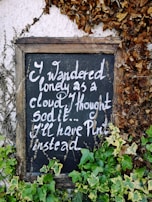 I wandered
lonely as a
cloud, I thought
sod it...
I'll have Pint
instead